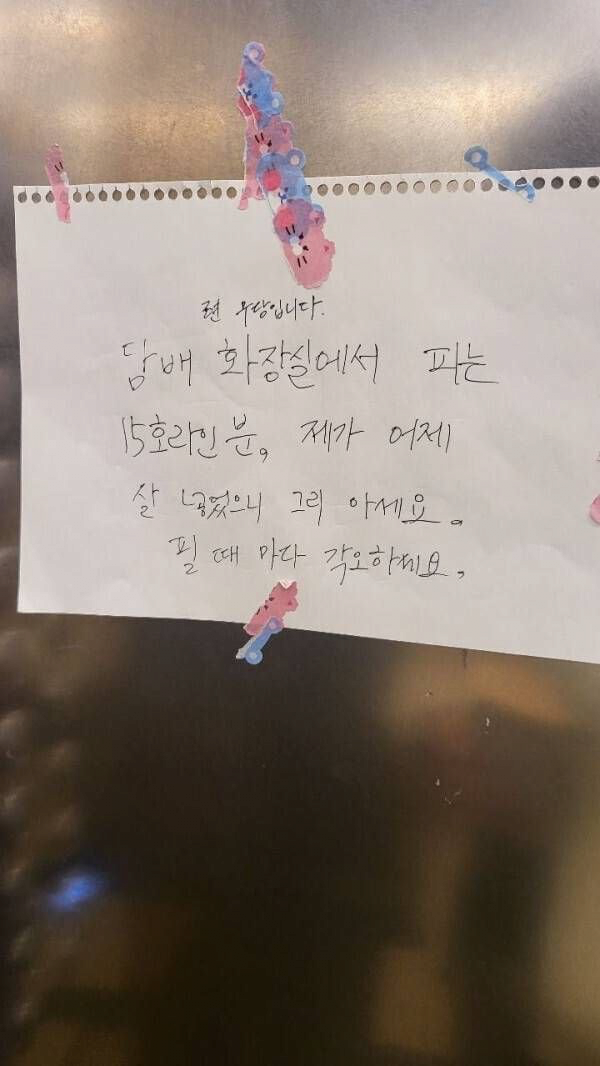 전 무당입니다.
담배 화장실에서 피는
15호라인 분, 제가 어제
살 그리 아세요.
필 때 마다 각오하세요.